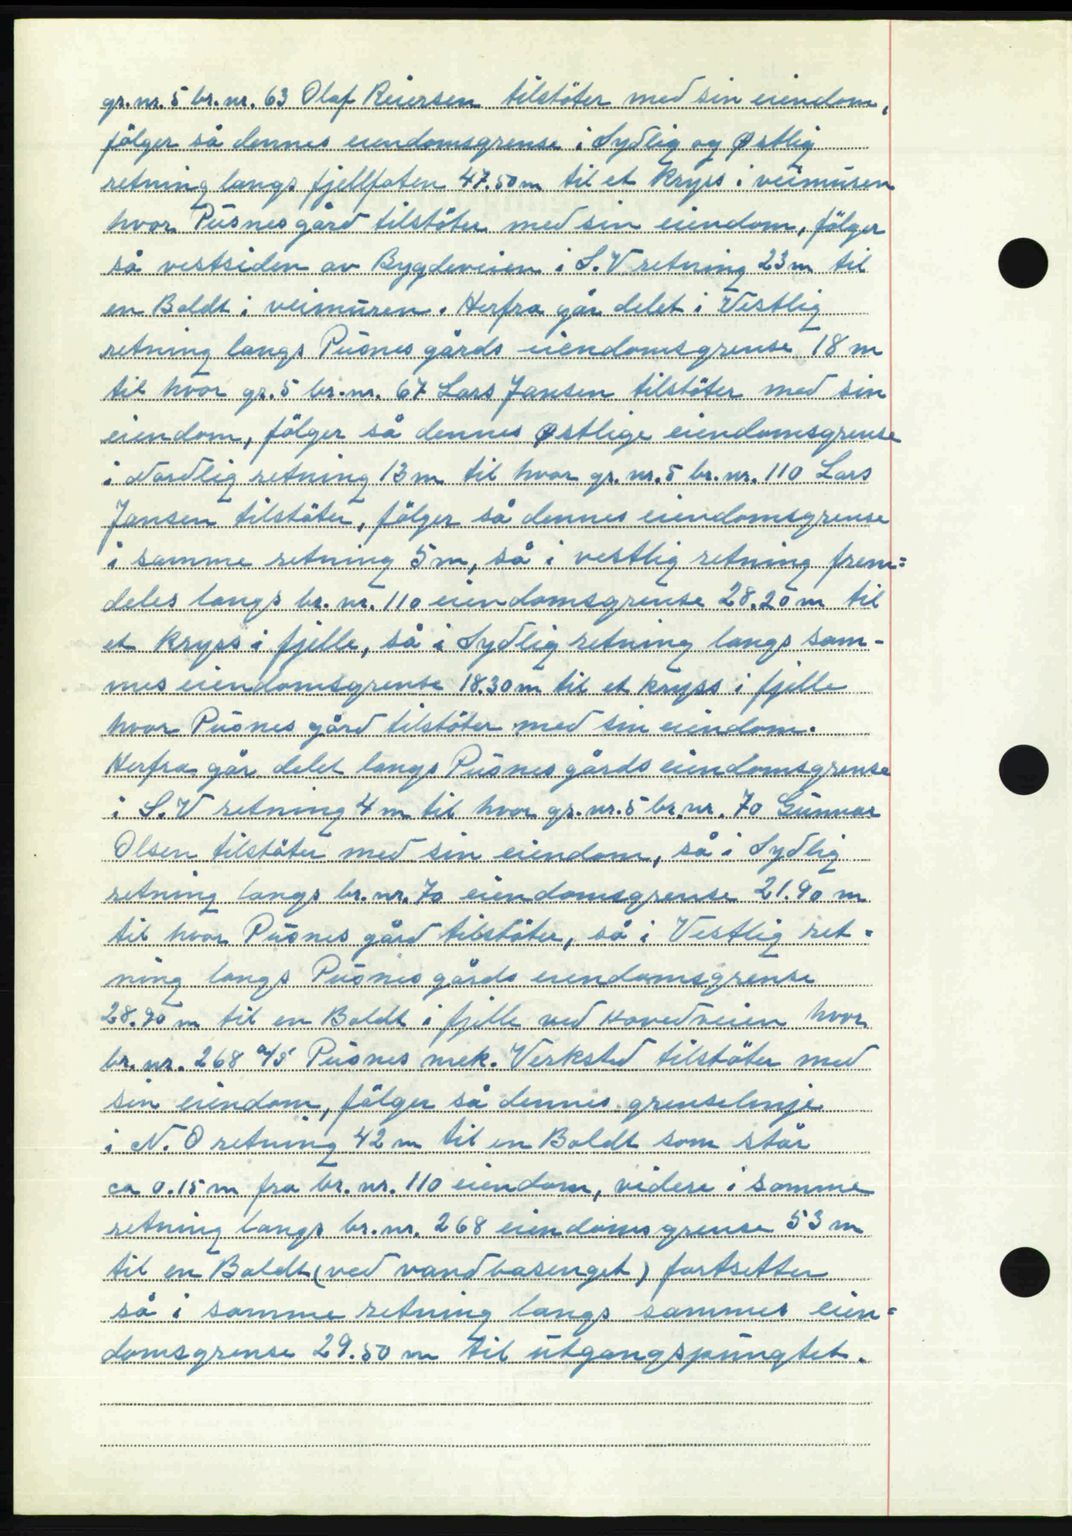 gr. nr. 5 br. nr. 63 Olaf Reiersen tilstöter med sin eiendom,
fölger så dennes eiendomsgrense i Sydlig og Østlig
retning langs fjellfoten 47.50 m til et kryss i veimuren
hvor Pusnes gård tilstöter med sin eiendom, fölger
så vestsiden av Bygdeveien i S.V retning 23 m til
en Boldt i veimuren. Herfra går delet i Vestlig
retning langs Pusnes gårds eiendomsgrense 18 m
til hvor gr. 5 br. nr. 67 Lars Jansen tilstöter med sin
eiendom, fölger så dennes østlige eiendomsgrense
i Nordlig retning 13 m til hvor gr. nr. 5 br. nr. 110 Lars
Jansen tilstöter, fölger så dennes eiendomsgrense
i samme retning 5 m, så i vestlig retning frem=
deles langs br. nr. 110 eiendomsgrense 28.20 m til
et kryss i fjelle, så i Sydlig retning langs sam-
mes eiendomsgrense 18.30 m til et kryss i fjelle
hvor Pusnes gård tilstöter med sin eiendom.
Herfra går delet langs Pusnes gårds eiendomsgrense
i S.V retning 4 m til hvor gr. nr. 5 br. nr. 70 Gunnar
Olsen tilstöter med sin eiendom, så i Sydlig
retning langs br. nr. 70 eiendomsgrense 21.90 m
til hvor Pusnes gård tilstöter, så i Vestlig ret=
ning langs Pusnes gårds eiendomsgrense
28.90 m til en Boldt i fjelle ved Hovedveien hvor
br. nr. 268 a/s Pusnes mek. Verksted tilstöter med
sin eiendom, fölger så dennes grenselinje
i N.O retning 42 m til en Boldt som står
ca 0.15 m fra br. nr. 110 eiendom, videre i samme
retning langs br. nr. 268 eiendomsgrense 53 m
til en Boldt (ved vandbasenget) fortsetter
så i samme retning langs sammes eien=
domsgrense 29.50 m til utgangspungtet.